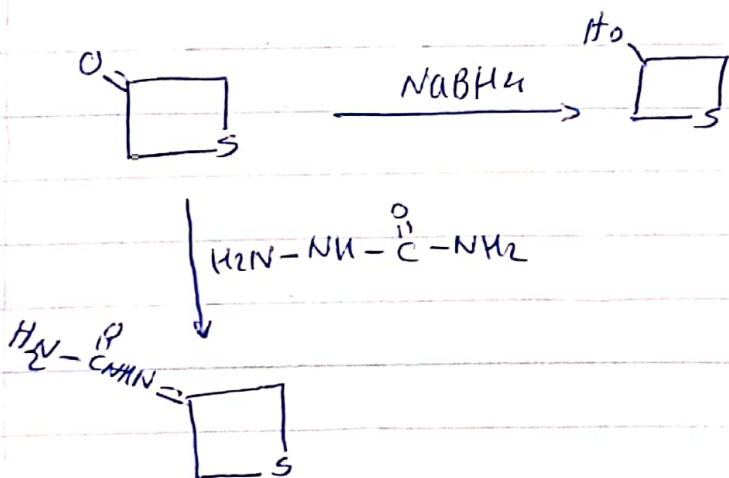 O
S
NaBH4
HO
S
H2N-NH-C-NH2
O
H2N-C-NHN=
O
S